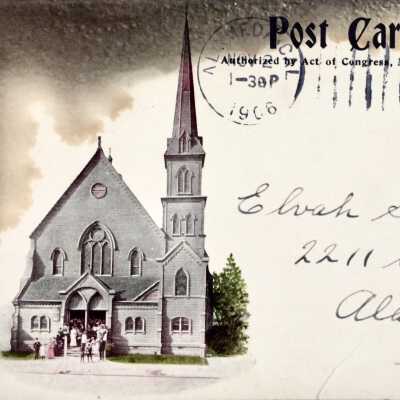 Post Car
Authorized by Act of Congress,
CAL
1-30P
1906
Elvah
2211
Ala